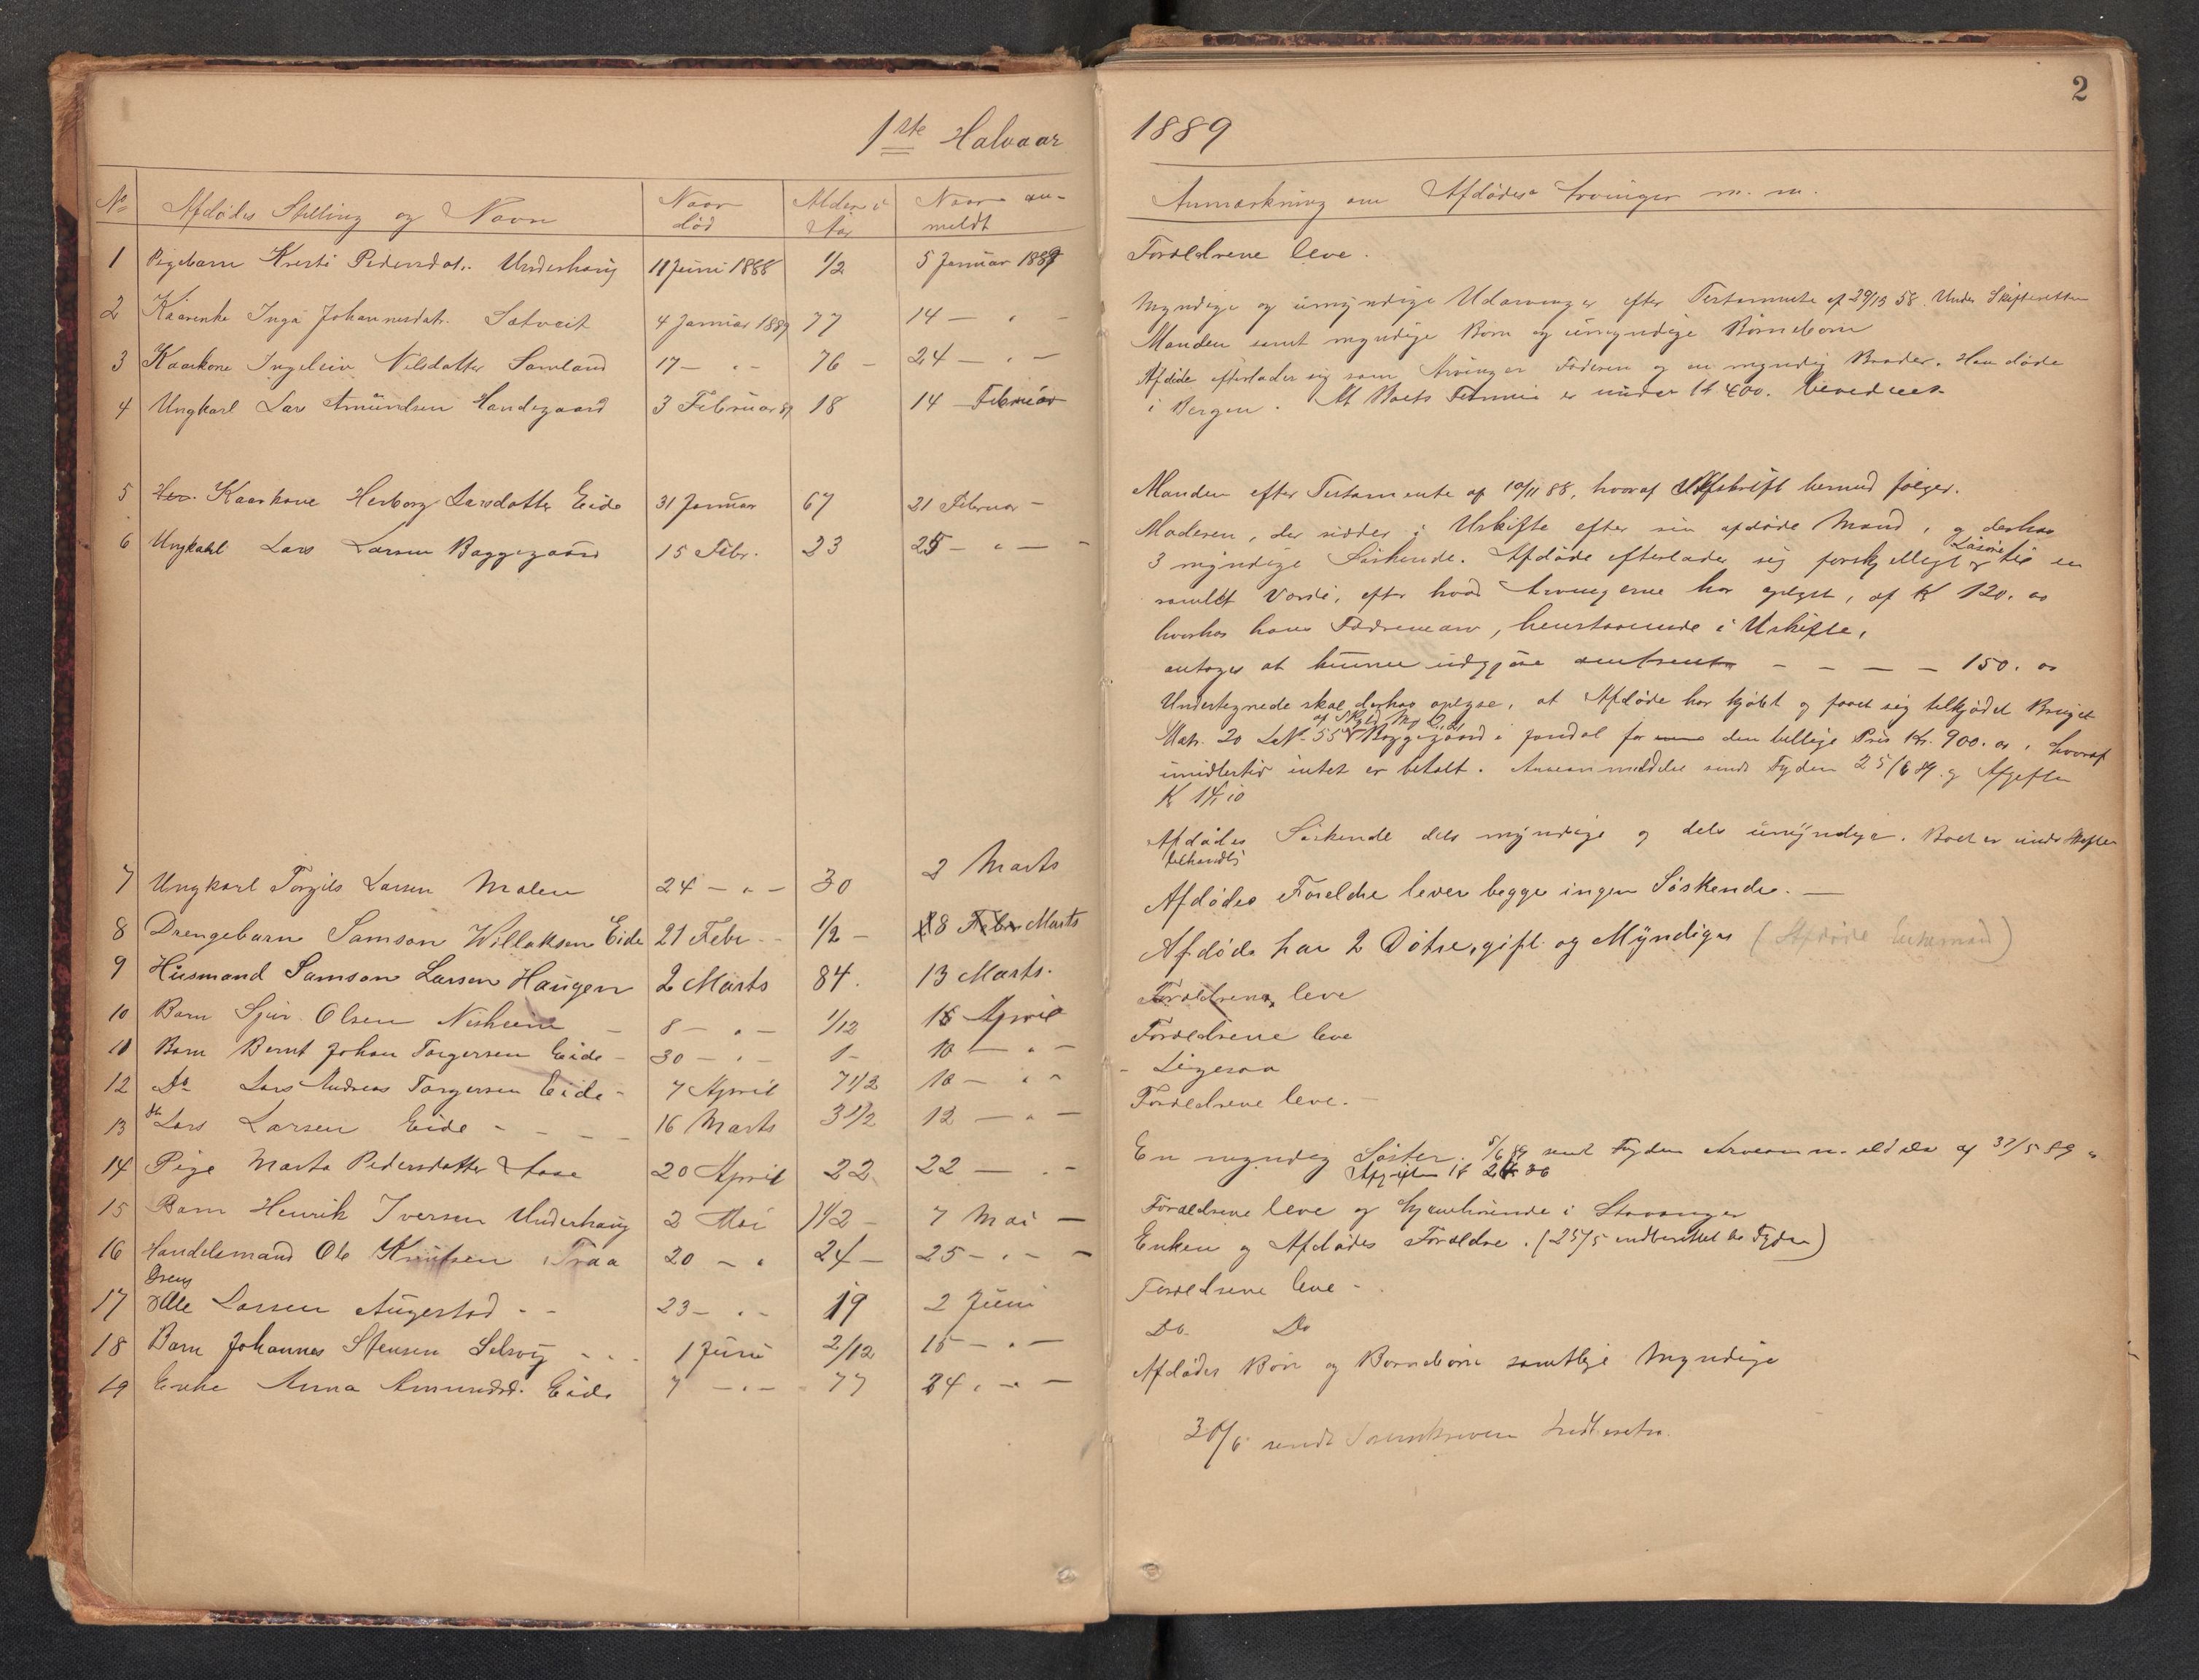 2
1ste Halvaar
1889
No
Afdødes Stilling og Navn
Naar død
Alder i Aar
Naar anmeldt
Anmærkning om Afdødes Arvinger m. m.
1 Pigebarn Kristi Pedersdat. Underhaug 11 Juni 1888 1/2 5 Januar 1889
Forældrene leve.
2 Inga Johannesdatr. Sætveit 4 Januar 1889 77 14 — " —
Myndige og umyndige Udarvinger efter Testamente af 58. Under Skifteretten
3 Kaarkone Nilsdatter Samland 17 — " — 76 — 24 — " —
Manden samt myndige Børn og umyndige Børnebørn
4 Ungkarl Lars Amundsen Handegaard 3 Februar 89 18 14 Februar
Afdøde efterlader sig som Arvinger Faderen og en myndig Broder. Han døde
i Bergen. At Boets Formue er under Kr 400.
5 Kaarkone Herborg Larsdatter Eide 31 Januar 67 21 Februar —
Manden efter Testamente af 10/11 88, hvoraf Udskrift hermed følger.
6 Ungkarl Lars Larsen Baggegaard 15 Febr. 23 25 — " — -
Moderen, der sidder i Uskifte efter sin afdøde Mand, og derhos
3 myndige Søskende. Afdøde efterlader sig forskjelligt Løsøre til en
samlet Værdi, efter hvad Arvingerne har oplyst, af Kr 120. 00
hvorhos hans Fædrenearv, henstaaende i Uskifte,
antages at kunne udgjøre omtrent — — — — 150. 00
Undertegnede skal derhos oplyse, at Afdøde har kjøbt og faaet sig tilskjødet Bruget
Matr. 20 LNo 55 af Skyld Baggegaard i Jondal for den billige Pris Kr. 900. 00, hvoraf
imidlertid intet er betalt. Arveanmeldelse sendt Fogden 25/6 89 og Afgiften
Kr 14,10
7 Ungkarl Torgils Larsen Malen 24 — " — 30 2 Marts
Afdødes Søskende dels myndige og dels umyndige. Boet er under Skifte
behandlg
8 Drengebarn Samson Willaksen Eide 21 Febr — 1/2 — 8 Marts
Afdødes Foreldre lever begge ingen Søskende. —
9 Husmand Samson Larsen Haugen 2 Marts 84. 13 Marts.
Afdøde har 2 Døtre, gift og Myndiges (Afdøde Enkemand)
10 Barn Sjur Olsen 8 — " — 1/12 18 April
Forældrene leve
11 Barn Bernt Johan Torgersen Eide — 30 — " — 1 — 10 — " —
Forældrene leve
12 Do Lars Andreas Torgersen Eide — 7 April 7 1/2 10 — " —
Ligesaa
13 do Lars Larsen Eide — — — — 16 Marts 3 1/2 12 — " —
Forældrene leve. —
14 Pige Marta Pedersdatter Aase 20 April 22 22 — " —
En myndig Søster. 5/6 89 sendt Fogden Arveanmeldelse af 31/5 89
Afgiften Kr
15 Barn Henrik Iversen Underhaug 2 Mai 1/2 — 7 Mai —
Forældrene leve og hjemhørende i Stavanger
16 Handelsmand Ole Knutsen Traa 20 — " 24 — 25 — " — —
Enken og Afdødes Forældre. (25/5 indberettet til Fogden)
17 Dreng Olle Larsen Augestad — — 23 — " — 19 2 Juni
Forældrene leve —
18 Barn Johannes Stensen Selsvig — — 1 Juni 2/12 15 — " —
Do. Do
19 Enke Anna Amundsd. Eide 7 — " — 77 24 " — " —
Afdødes Børn og Børnebørn samtlige Myndige
30/6 sendt Sorenskriveren Indberetn.